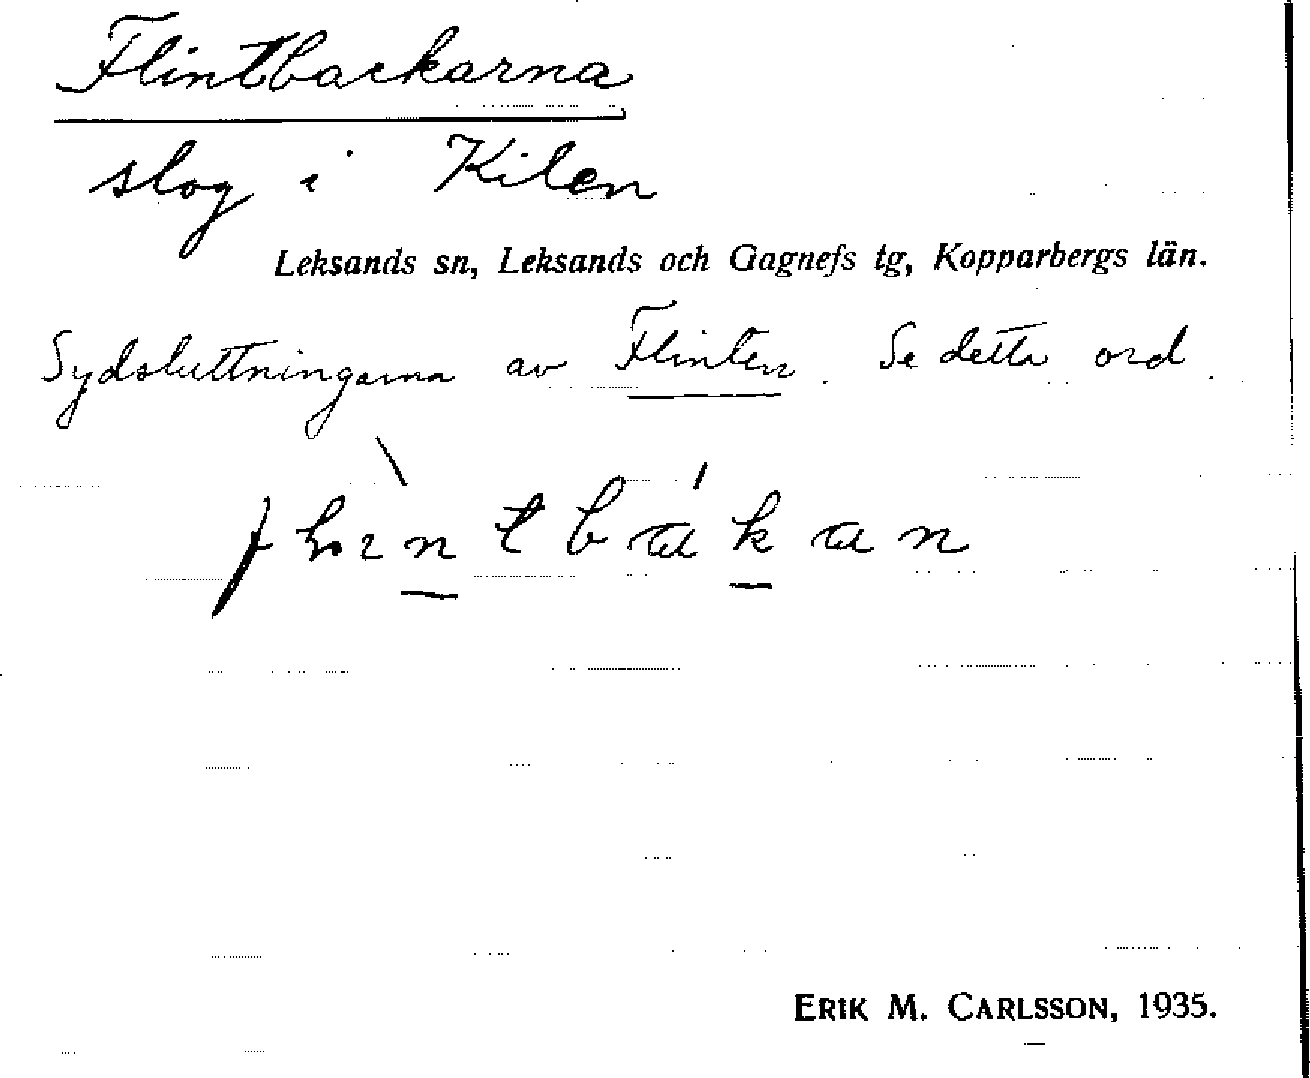 Flintbackarna
slog i Kilen
Leksands sn, Leksands och Gagnefs tg, Kopparbergs län.
Sydsluttningarna av Flinten. Se detta ord.
ERIK M. CARLSSON, 1935.